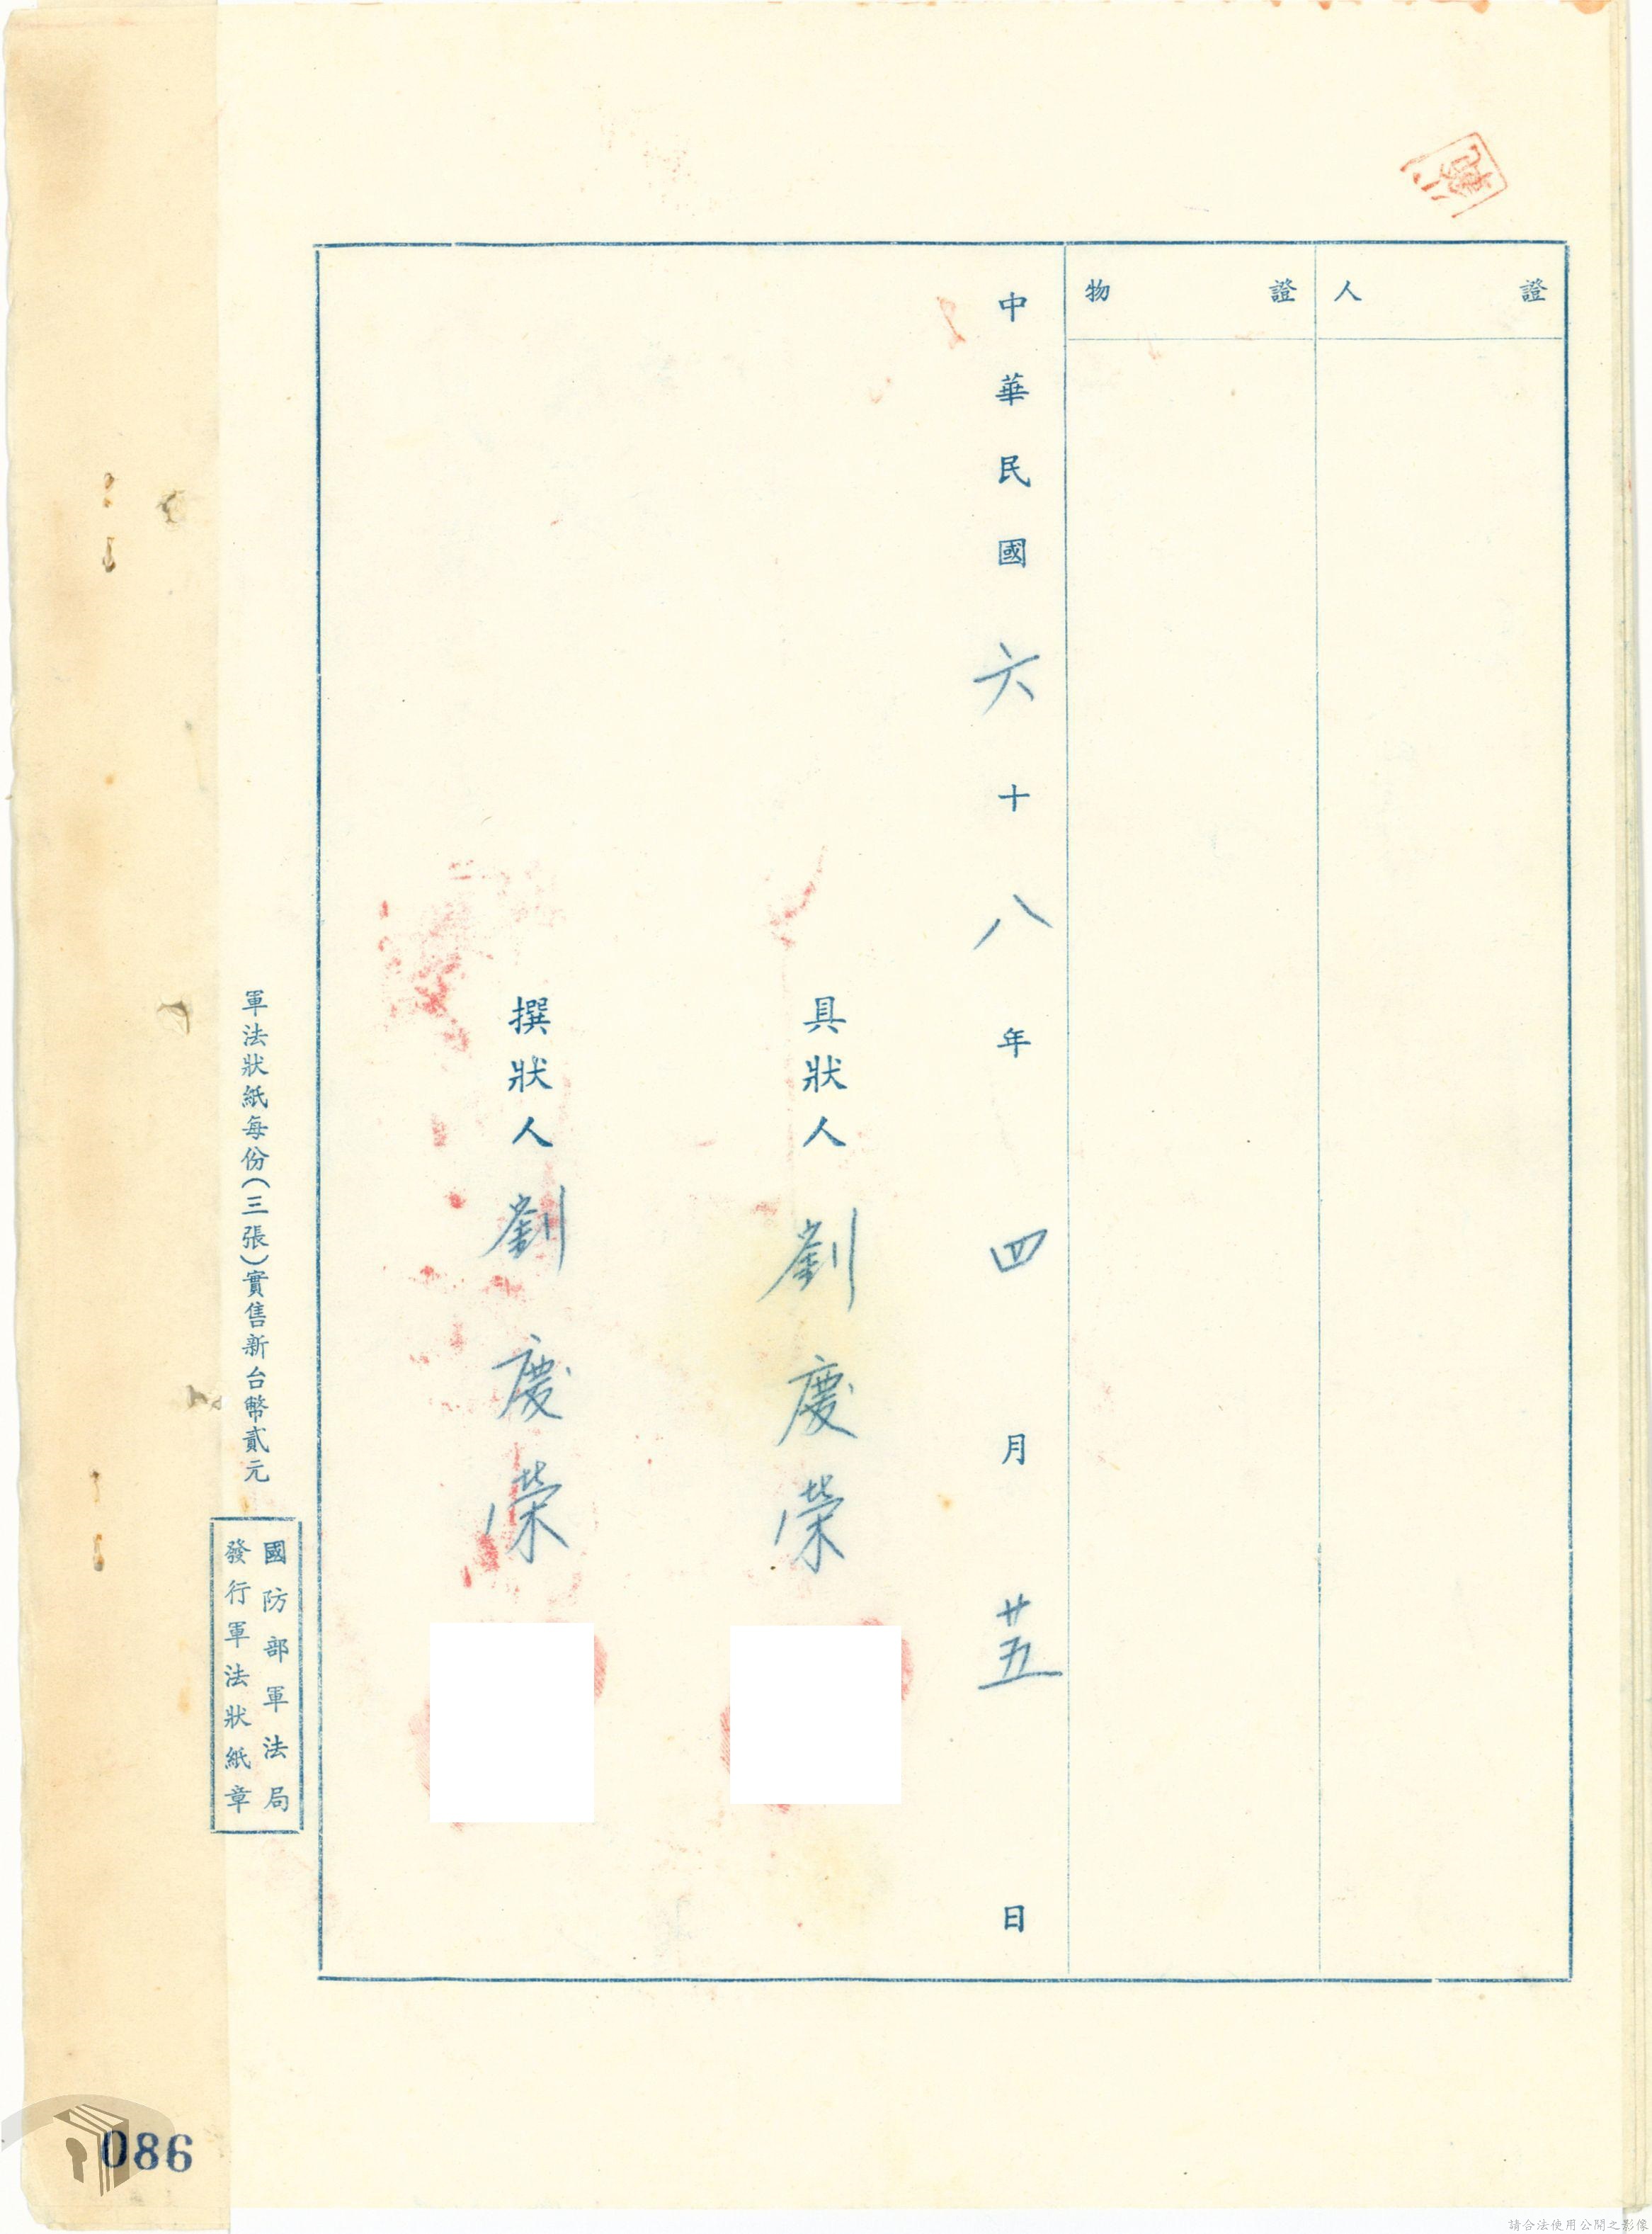 證人
證物
中華民國六十八年四月廿五日
具狀人 劉慶榮
撰狀人 劉慶榮
軍法狀紙每份(三張)實售新台幣貳元
國防部軍法局
發行軍法狀紙章
086
請合法使用公開之影像